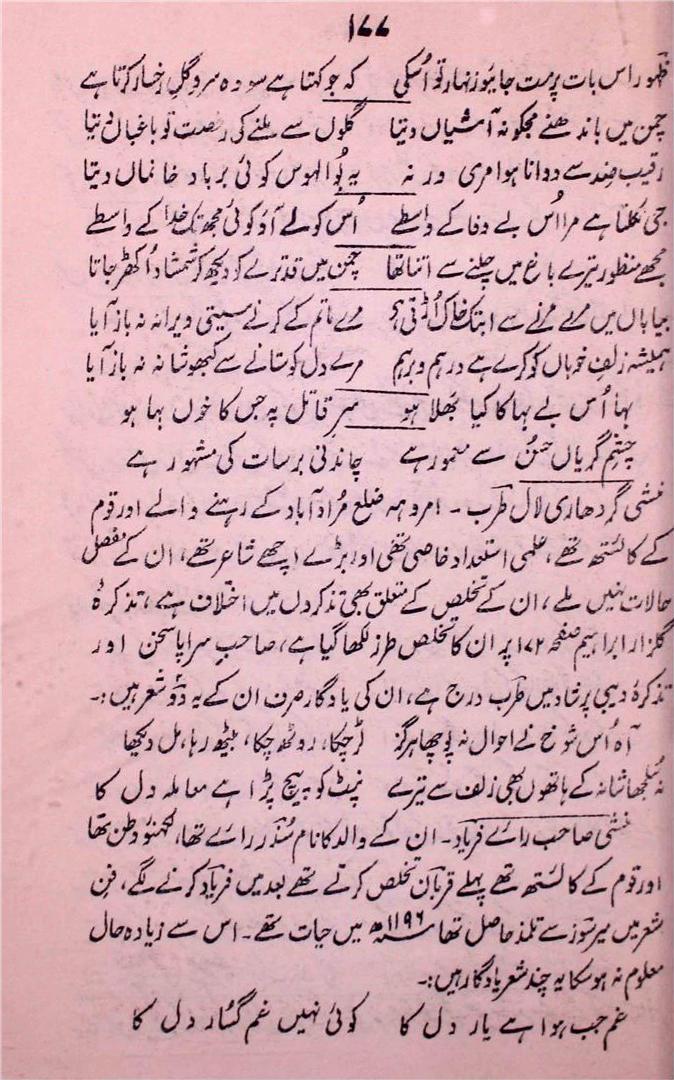 ۱۷۷
ظہور اس بات پر مت جائیو زنہار تو اُسکی کہ جو کہتا ہے سو وہ سرو گل رخسار کرتا ہے
چمن میں باندھنے مجکو نہ آشیاں دیتا گلوں سے ملنے کی رخصت تو باغباں دیتا
رقیب ضد سے دوانا ہوا مری ورنہ یہ بُوالہوس کوئی برباد خانماں دیتا
جی نکلتا ہے مرا اُس بے وفا کے واسطے اُس کو لے آؤ کوئی مجھ تک خدا کے واسطے
مجھے منظور تیرے باغ میں چلنے سے اتنا تھا چمن میں قد ترے کو دیکھ کر شمشاد اُکھڑ جاتا
بیاباں میں مرے مرنے سے ابتک خاک اُڑتی ہے مرے ماتم کے کرنے سیتی ویرانہ نہ باز آیا
ہمیشہ زلف خوباں کو کرے ہے درہم و برہم مرے دل کو ستانے سے کبھو شانا نہ باز آیا
بہا اُس بے بہا کا کیا بھلا ہو سرِ قاتل پہ جس کا خوں بہا ہو
چشمِ گریاں حسن سے معمور ہے چاندنی برسات کی مشہور ہے
منشی گردھاری لال طرب ۔ امروہہ ضلع مُراد آباد کے رہنے والے اور قوم
کے کائستھ تھے، علمی استعداد خاصی تھی اور بڑے اچھے شاعر تھے، ان کے مفصل
حالات نہیں ملے، ان کے تخلص کے متعلق بھی تذکروں میں اختلاف ہے، تذکرۂ
گلزار ابراہیم صفحہ ۱۷۲ پر ان کا تخلص طرز لکھا گیا ہے، صاحبِ سراپا سخن اور
تذکرۂ دیبی پرشاد میں طرب درج ہے، ان کی یادگار صرف ان کے یہ دو شعر ہیں:۔
آہ اُس شوخ نے احوال نہ پوچھا ہرگز لڑ چکا، روٹھ چکا، بیٹھ رہا، مل دیکھا
نہ سُلجھا شانہ کے ہاتھوں بھی زلف سے تیرے نپٹ کو پیچ پڑا ہے معاملہ دل کا
منشی صاحب رائے فریاد۔ ان کے والد کا نام سُندر رائے تھا، لکھنؤ وطن تھا
اور قوم کے کائستھ تھے پہلے قرباں تخلص کرتے تھے بعد میں فریاد کرنے لگے، فنِ
شعر میں میر سوز سے تلمذ حاصل تھا ۱۱۹۶ھ میں حیات تھے۔ اس سے زیادہ حال
معلوم نہ ہو سکا یہ چند شعر یادگار ہیں:۔
غم جب ہوا ہے یار دل کا کوئی نہیں غم گُسار دل کا